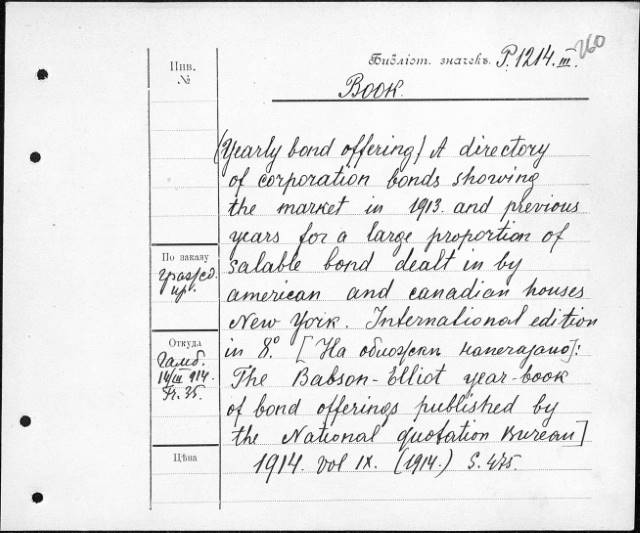 260
Библіот. значекъ. P.1214.III.
Инв.
№
Book.
(Yearly bond offering) A directory
of corporation bonds showing
the market in 1913. and previous
years for a large proportion of
salable bond dealt in by
american and canadian houses
New York. International edition
in 8°. [На обложки напечатано]:
The Babson-Elliot year-book
of bond offerings published by
the National quotation Bureau]
1914. vol IX. (1914.) S. 475.
По заказу
гражд.
пр.
Откуда
Гамб.
14/III 914.
Fr. 35.
Цѣна